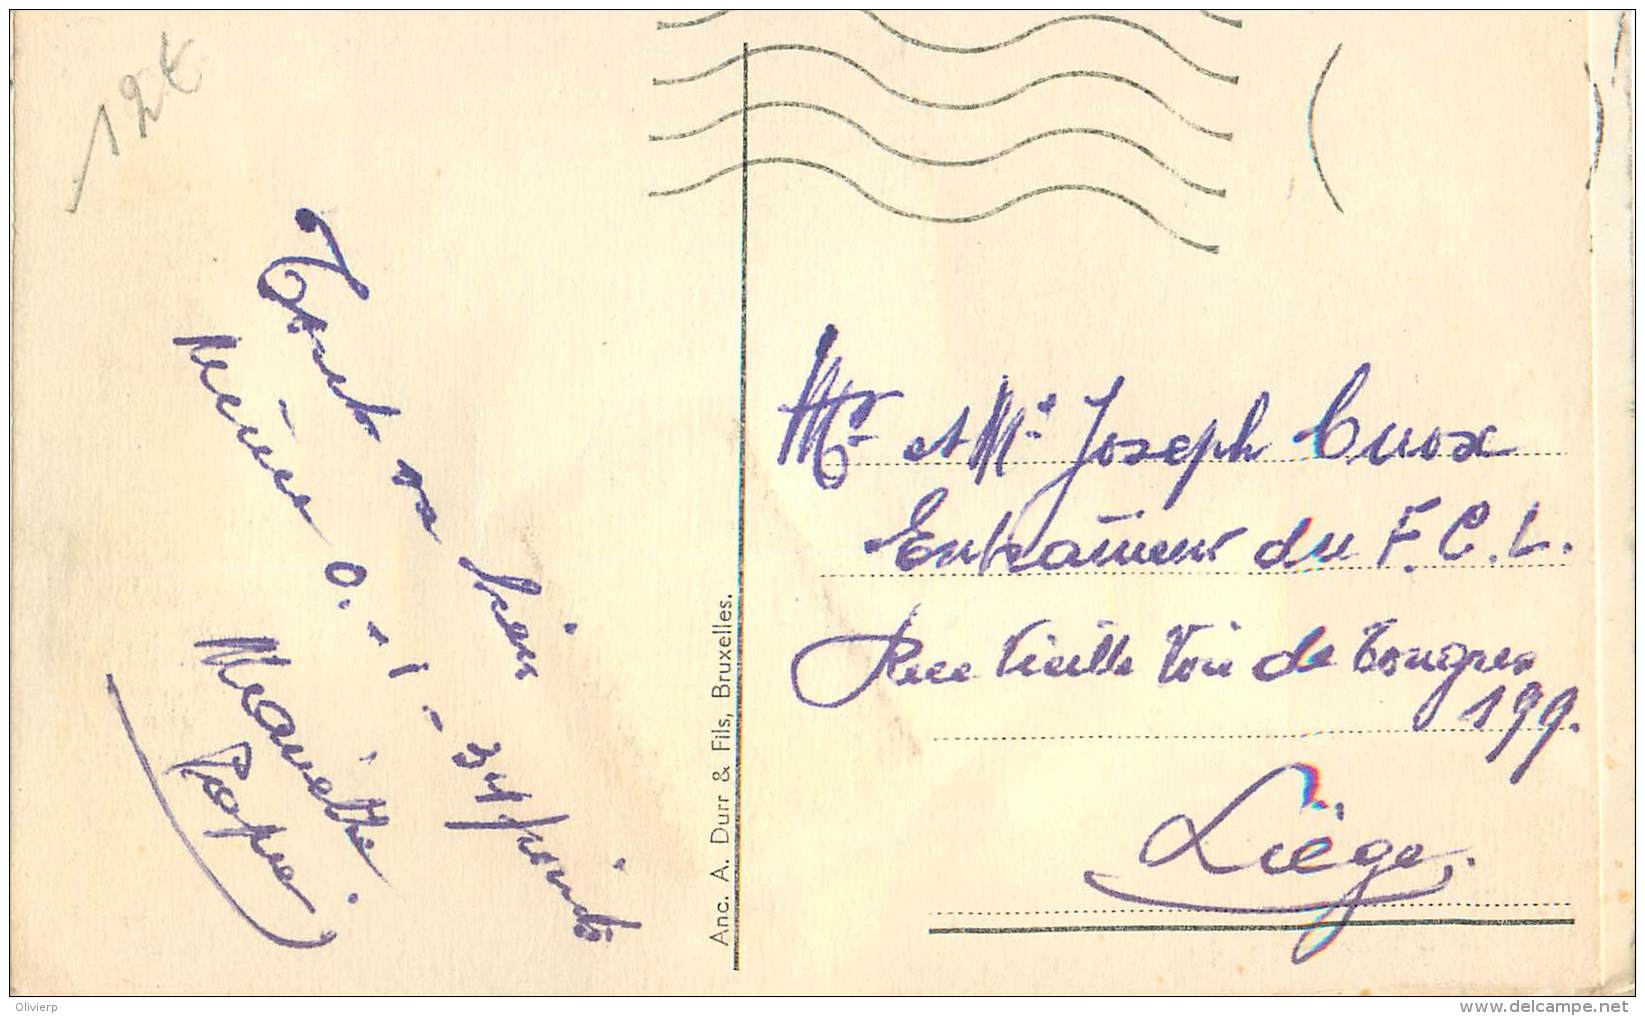 12€
Tout va bien
0 - 1 - 34 points
Mariette
Anc. A. Durr & Fils, Bruxelles.
Mr et Me Joseph Cuox
Entraîneur du F.C.L.
Rue Vieille Voie de Tongres
199.
Liège.
Olivierp
www.delcampe.net